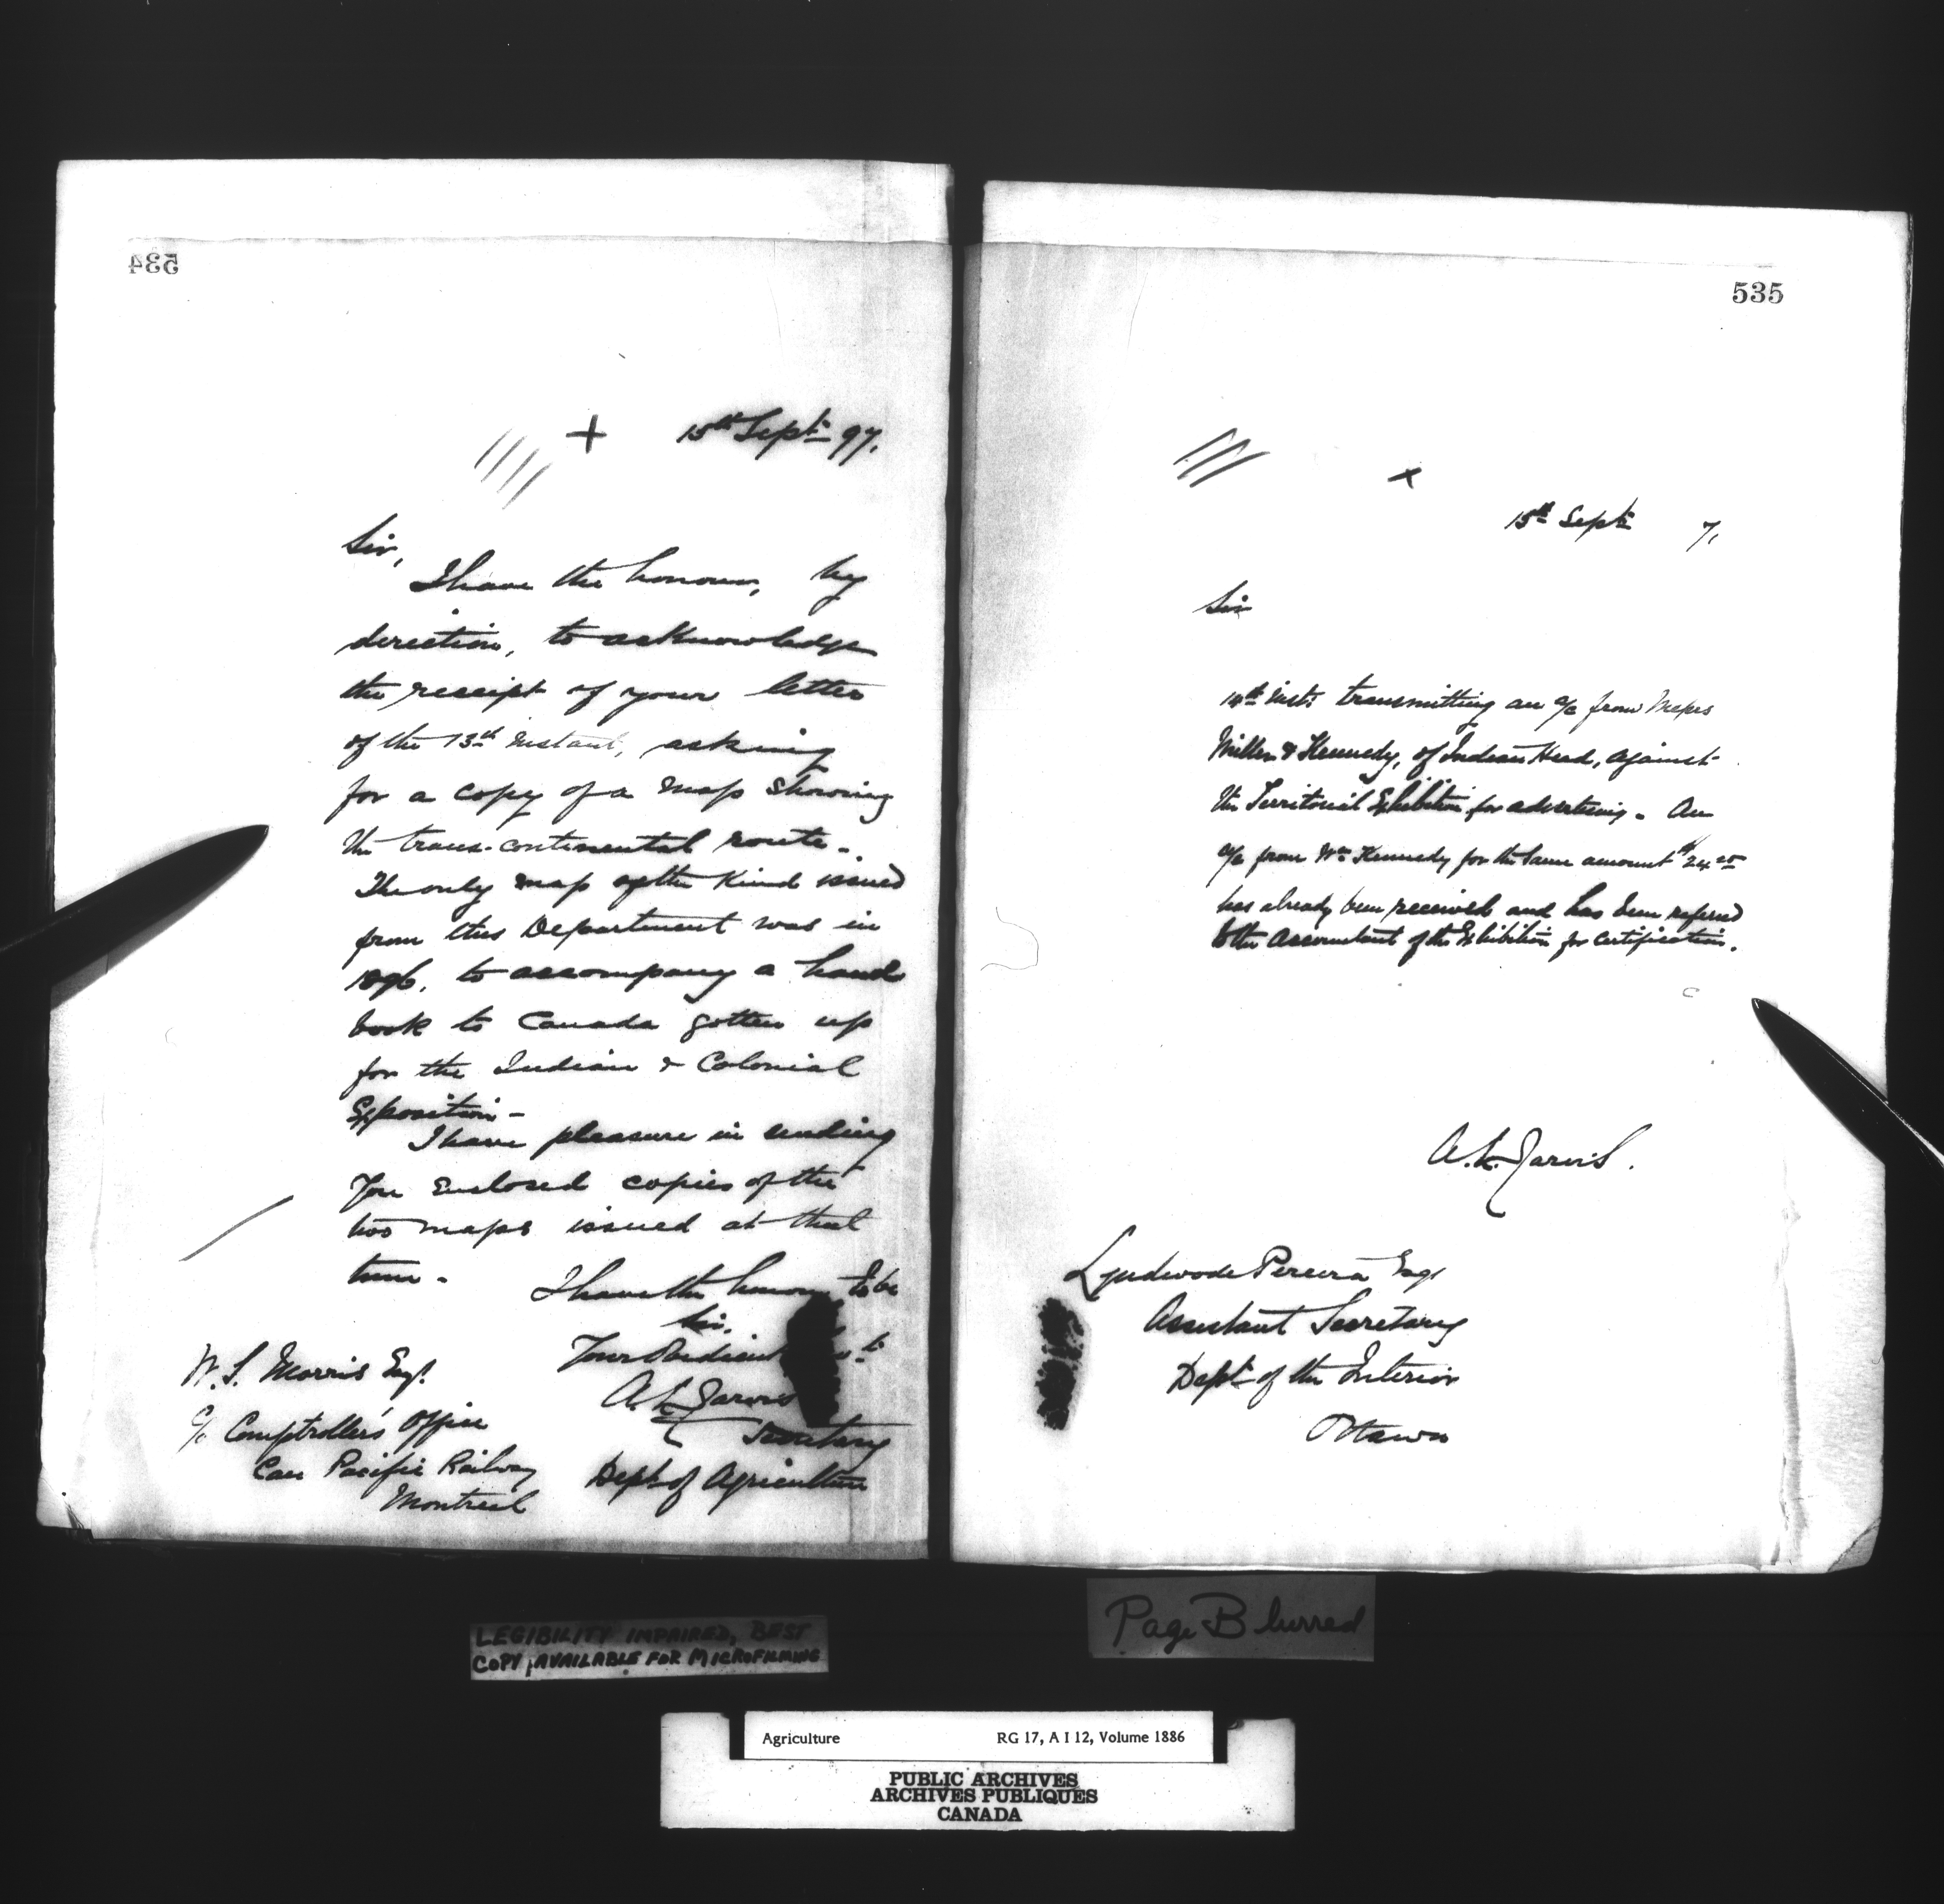 534
+ 15th Sept. 97.
Sir,
I have the honour, by
direction, to acknowledge
the receipt of your letter
of the 13th instant, asking
for a copy of a map showing
the trans-continental route-.
The only map of the kind issued
from this Department was in
to accompany a hand
book to Canada gotten up
for the Indian & Colonial
Exposition-
I have pleasure in sending
you enclosed copies of the
two maps issued at that
time-
I have the honour to be
Sir,
Your Obedient
A. L. Jarvis
Secretary
Dept of Agriculture
W. S. Morris Esq.
c/o Comptroller's Office
Can Pacific Railway
Montreal
535
x
15th Sept. 7.
Sir
14th inst. transmitting an a/c from Messrs
Miller & Kennedy, of Indian Head, against
the Territorial Exhibition for advertising. An
a/c from Wm Kennedy for the same amount $24
has already been received and has been referred
to the Accountant of the Exhibition for certification.
A. L. Jarvis.
Lyndwode Pereira Esq
Assistant Secretary
Dept. of the Interior
Ottawa
LEGIBILITY IMPAIRED, BEST
COPY AVAILABLE FOR MICROFILMING
Page Blurred
Agriculture RG 17, A I 12, Volume 1886
PUBLIC ARCHIVES
ARCHIVES PUBLIQUES
CANADA